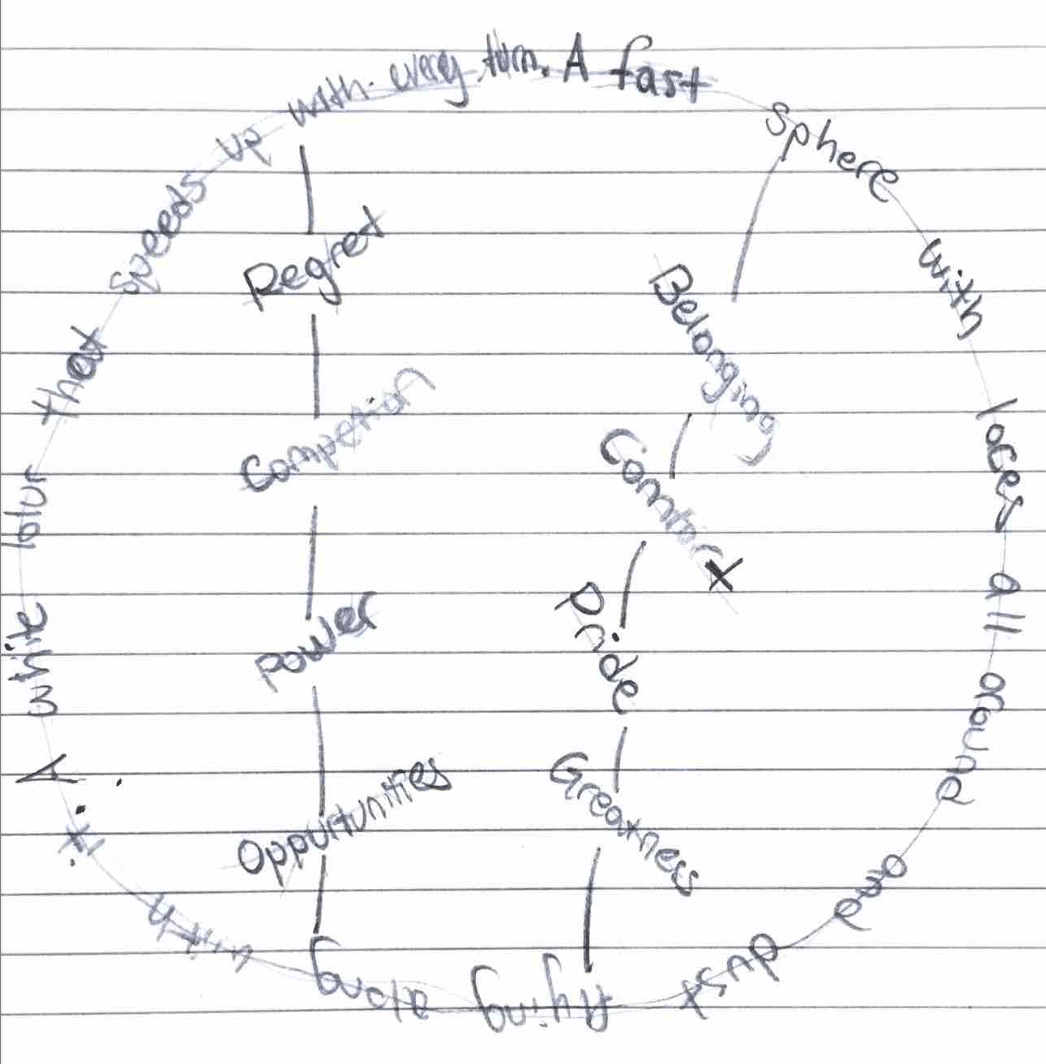 A fast sphere with laces all around and dust flying along with it. A white blur that speeds up with every turn.
Regret
Competion
Power
Oppurtunities
Belonging
Comfort
Pride
Greatness